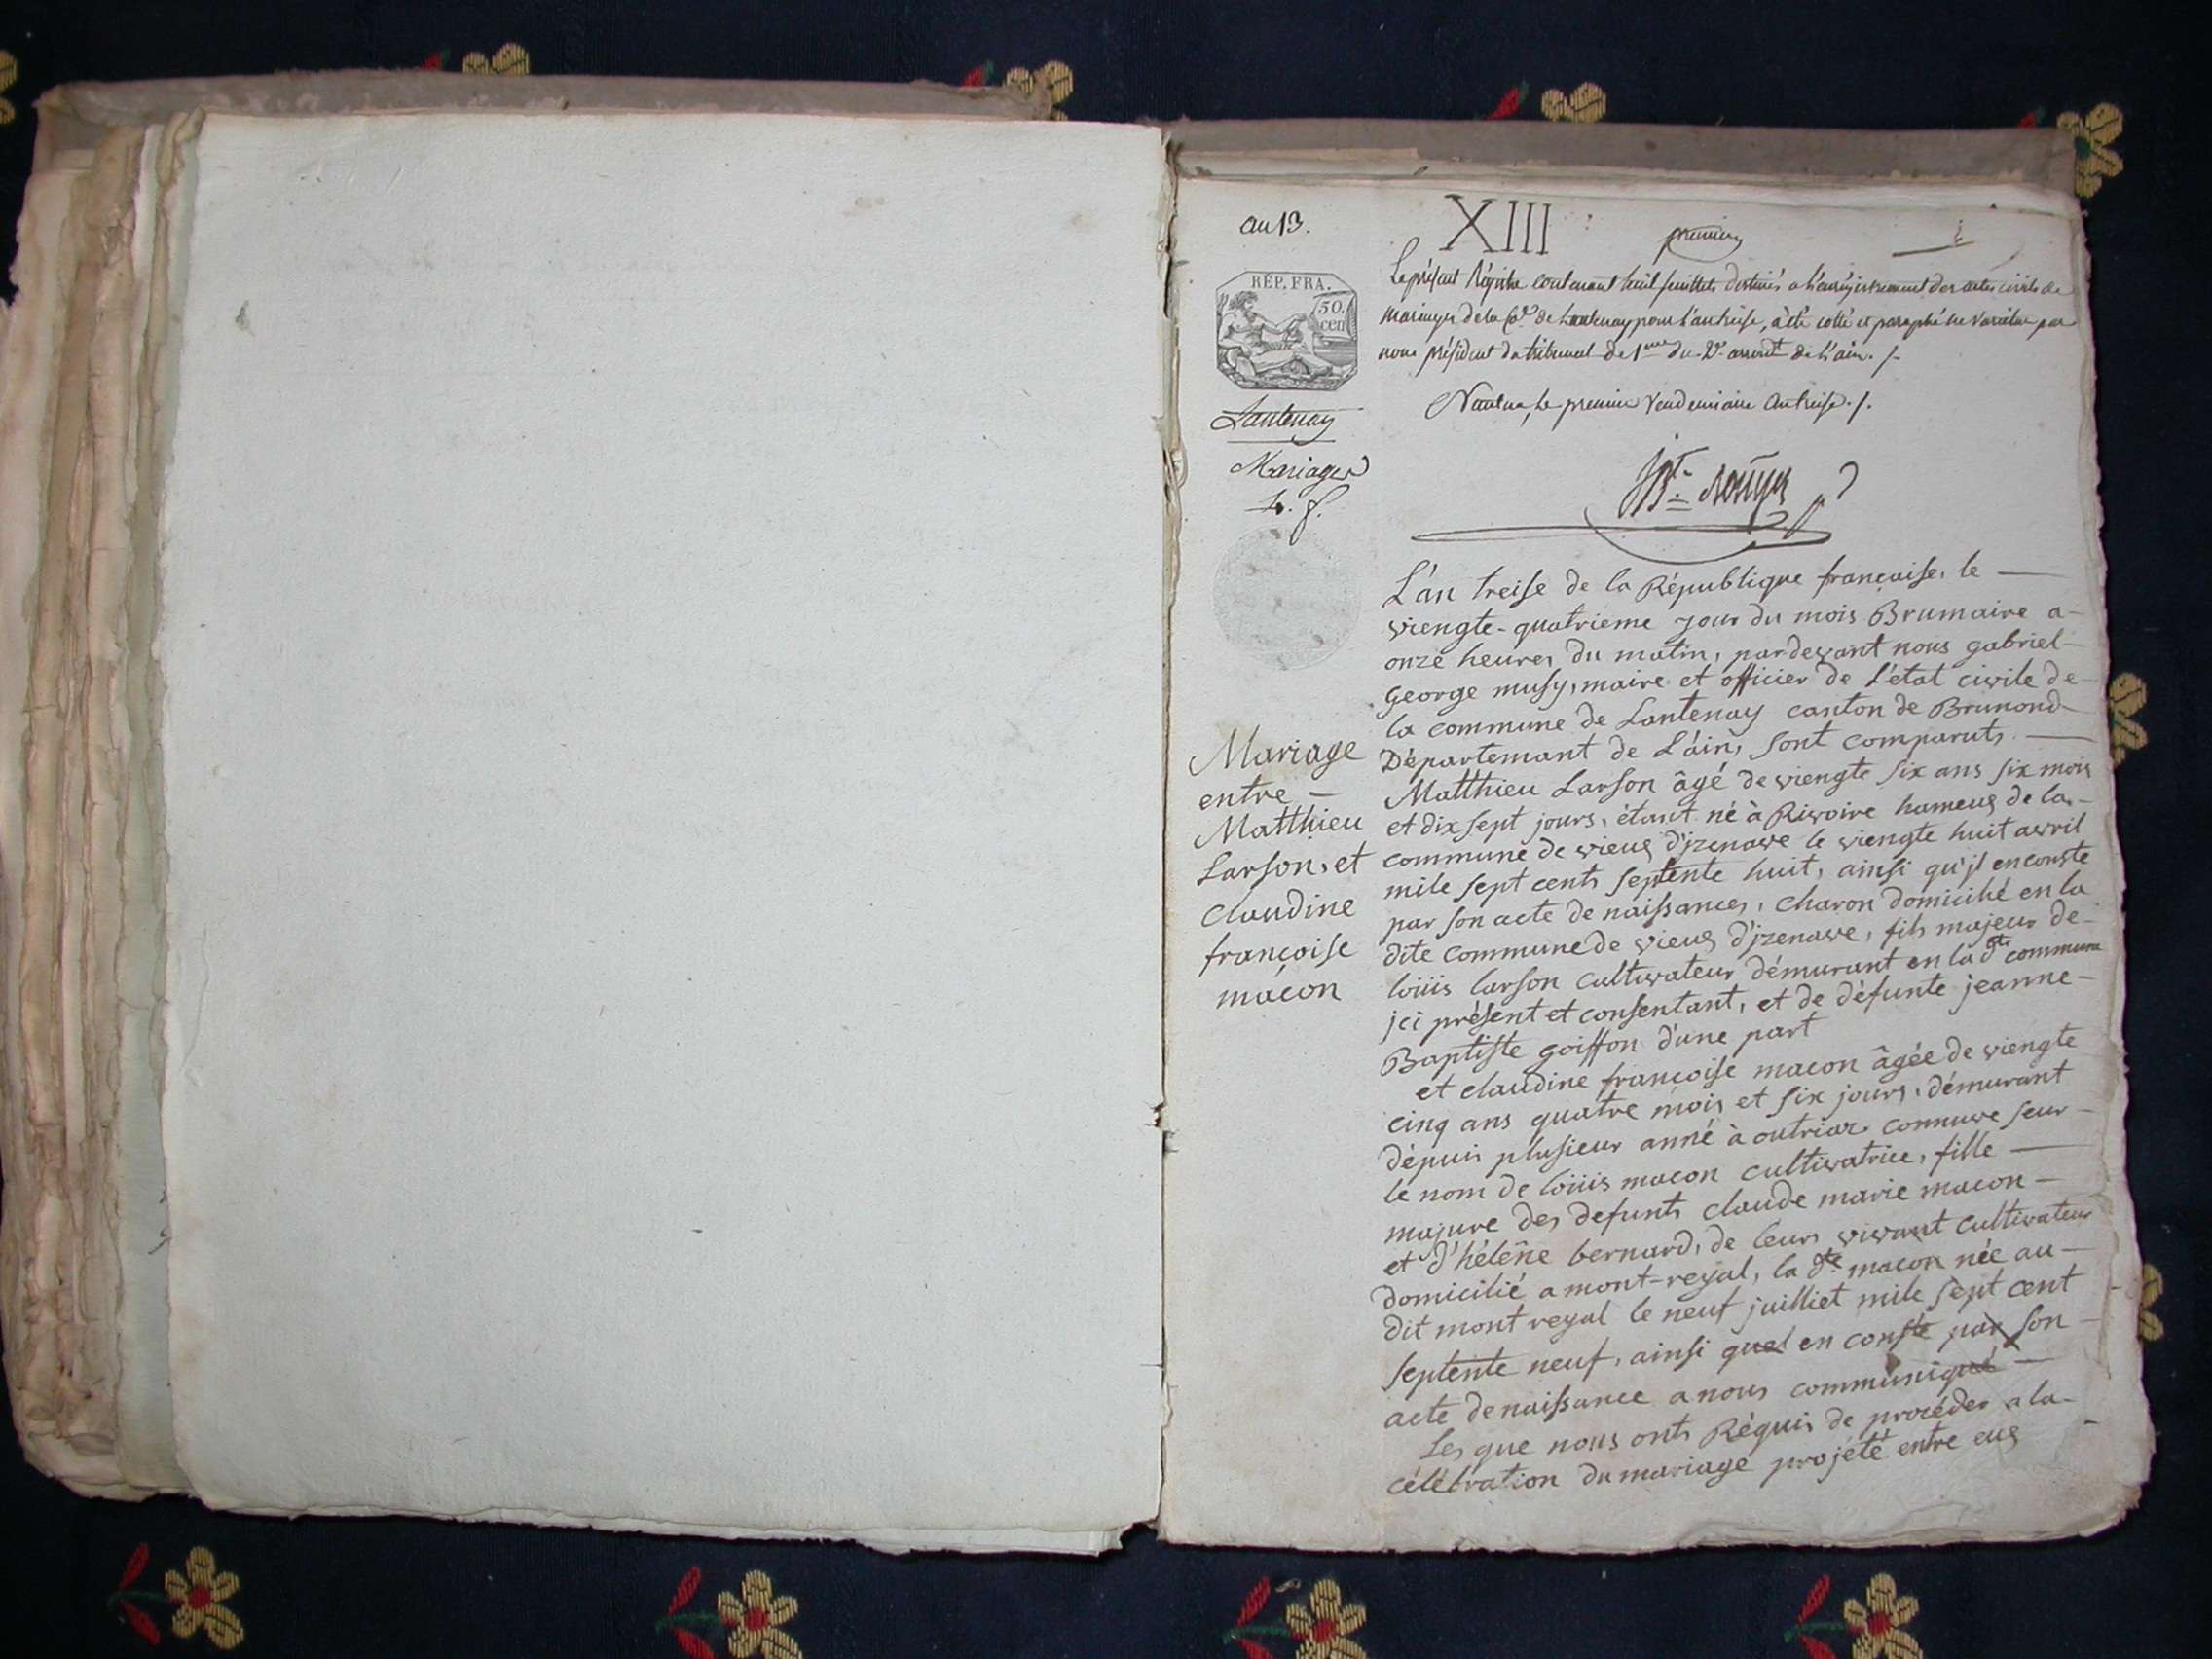 an 13.
XIII
premier
1
RÉP. FRA.
50.
cen
Lantenay
Mariages
Le présent Régistre contenant huit feuillets destinés a l'enrégistrement des actes civils de
mariages de la Cne de Lantenay pour l'an treise, à été cotté et paraphé ne varietur par
nous président du tribunal de 1ere du 2e arrondt de l'ain. /.
Nantua, Le premier Vendemiaire an treise. /.
L'án treise de la République françaíse, le
viengte-quatrieme jour du mois Brumaire a
onze heures du matin, pardevant nous gabriel
george musy, maire et officier de l'état civile de
la commune de Lantenay canton de Brunond
Départemant de L'áin, sont comparuts
Mariage
entre
Matthieu
Larson, et
claudine
françoise
macon
Matthieu Larson âgé de viengte six ans six mois
et dix sept jours, étant né à Rivoire hameug de la
commune de vieug d'jzenave le viengte huit avril
mile sept cents septente huit, ainsi qu'jl en conste
par son acte de naissances, charon domicilié en la
dite commune de vieug d'jzenave, fils majeur de
loüis larson cultivateur démurant en la dte commune
jci présent et consentant, et de défunte jeanne
Baptiste goiffon d'une part
et claudine françoise macon âgée de viengte
cinq ans quatre mois et six jours, démurant
dépuis plusieur anné à outriaz connuve seur
le nom de loüis macon cultivatrice, fille
majure des defunts claude marie macon
et d'hélêne bernard, de leurs vivant cultivateur
domicilié a mont-reyal, la dte macon née au
dit mont reyal le neuf juilliet mile sept cent
septente neuf, ainsi quel en conste par son
acte de naissance a nous communiqué
Les que nous onts Réquis de procéder a la
célébration du mariage projété entre eug